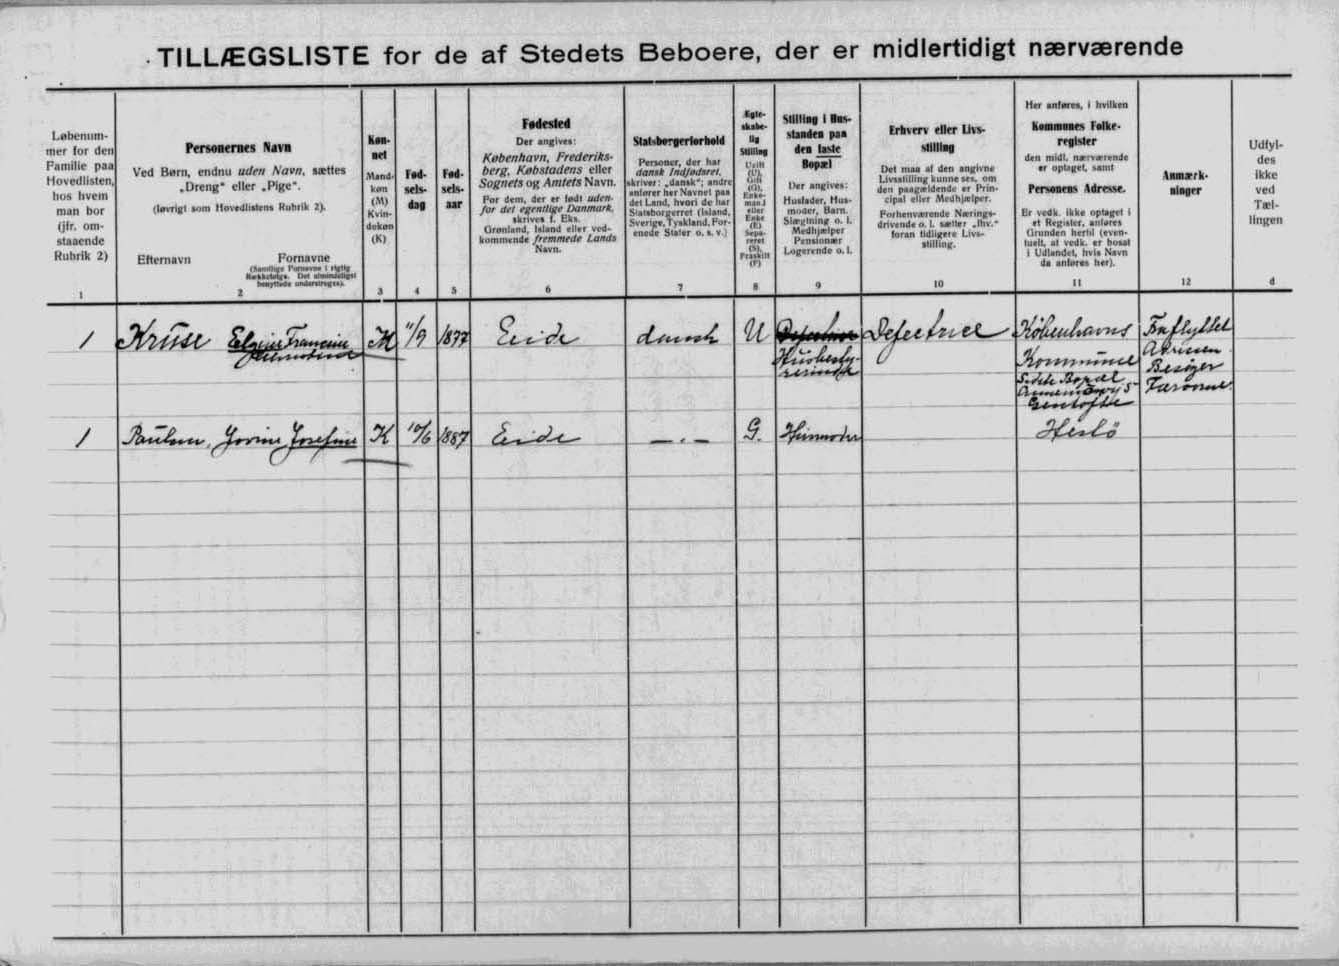 TILLÆGSLISTE for de af Stedets Beboere, der er midlertidigt nærværende
Løbenum-
mer for den
Familie paa
Hovedlisten,
hos hvem
man bor
(jfr. om-
staaende
Rubrik 2)
1
Personernes Navn
Ved Børn, endnu uden Navn, sættes
„Dreng“ eller „Pige“.
(Iøvrigt som Hovedlistens Rubrik 2).
Efternavn
Fornavne
(Samtlige Fornavne i rigtig
Rækkefølge. Det almindeligst
benyttede understreges).
2
Køn-
net
Mand-
køn
(M)
Kvin-
dekøn
(K)
3
Fød-
sels-
dag
4
Fød-
sels-
aar
5
Fødested
Der angives:
København, Frederiks-
berg, Købstadens eller
Sognets og Amtets Navn.
For dem, der er født uden-
for det egentlige Danmark,
skrives f. Eks.
Grønland, Island eller ved-
kommende fremmede Lands
Navn.
6
Statsborgerforhold
Personer, der har
dansk Indfødsret,
skriver: „dansk“; andre
anfører her Navnet paa
det Land, hvori de har
Statsborgerret (Island,
Sverige, Tyskland, For-
enede Stater o. s. v.)
7
Ægte-
skabe-
lig
Stilling
Ugift
(U),
Gift
(G),
Enke-
mand
eller
Enke
(E)
Sepa-
reret
(S),
Fraskilt
(F)
8
Stilling i Hus-
standen paa
den faste
Bopæl
Der angives:
Husfader, Hus-
moder, Barn,
Slægtning o. l.
Medhjælper
Pensionær
Logerende o. l.
9
Erhverv eller Livs-
stilling
Det maa af den angivne
Livsstilling kunne ses, om
den paagældende er Prin-
cipal eller Medhjælper.
Forhenværende Nærings-
drivende o. l. sætter „fhv.“
foran tidligere Livs-
stilling.
10
Her anføres, i hvilken
Kommunes Folke-
register
den midl. nærværende
er optaget, samt
Personens Adresse.
Er vedk. ikke optaget i
et Register, anføres
Grunden hertil (even-
tuelt, at vedk. er bosat
i Udlandet, hvis Navn
da anføres her).
11
Anmærk-
ninger
12
Udfyl-
des
ikke
ved
Tæl-
lingen
d
1 Kruse Francine K 11/9 1877 Eide dansk U Defectrice Københavns
Kommune
Sidste Bopæl
Gentofte
Fraflyttet
Adressen
Besøger
Færøerne
1 Paulsen, Jovine Josefine K 10/6 1887 Eide —·— G. Husmoder Heslö